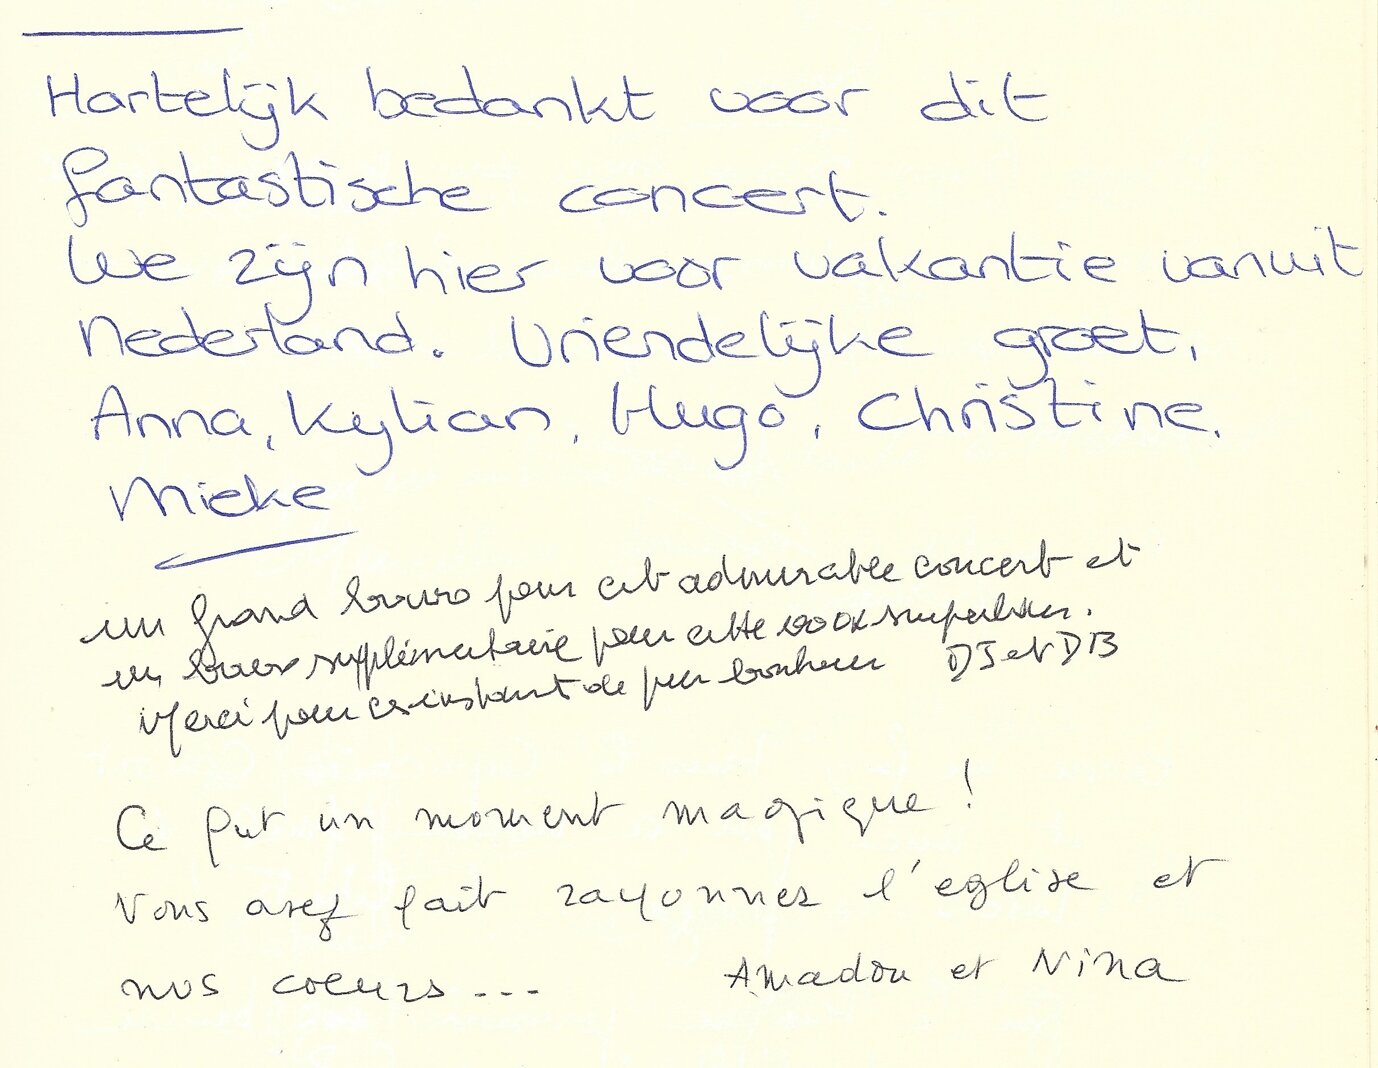 Hartelijk bedankt voor dit
fantastische concert.
We zijn hier voor vakantie vanuit
Nederland. Vriendelijke groet,
Anna, Kylian, Hugo, Christine,
Mieke
un grand bravo pour cet admirable concert et
un bravo supplémentaire pour cette voix superbe.
Merci pour ces instants de pur bonheur DJ et DB
Ce fut un moment magique !
Vous avez fait rayonner l'eglise et
nos coeurs...
Amadou et Nina